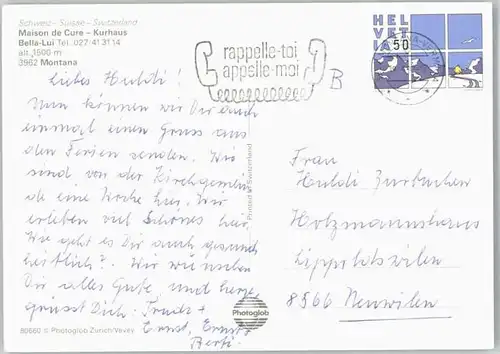 Schweiz – Suisse – Switzerland
Maison de Cure – Kurhaus
Bella-Lui Tel. 027-413114
alt. 1500 m
3962 Montana
rappelle-toi
appelle-moi
HEL
VET
IA 50
B
Liebes Huldi!
Nun können wir Dir auch
einmal einen Gruss aus
den Ferien senden. Wir
sind von der Kirchgemein
de eine Woche hier. Wir
erleben viel Schönes hier.
Wie geht es Dir auch gesund
heitlich? Wir wünschen
Dir alles Gute und
grüsst Dich. Trudi +
Ernst,
Berti.
Printed in Switzerland
Frau
Huldi Zurbuchen
Holzmannshaus
Lippoldswilen
8566 Neuwilen
Photoglob
80660 © Photoglob Zürich/Vevey